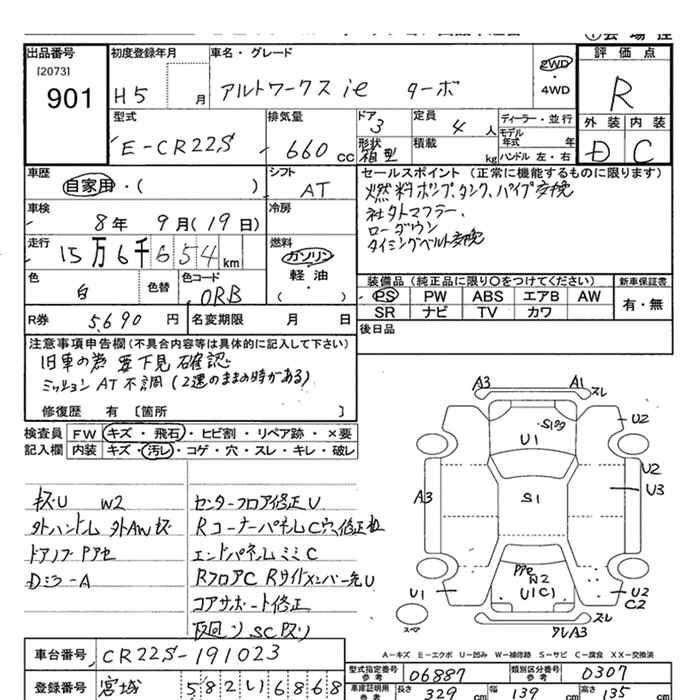 出品番号 初度登録年月 車名・グレード 評価点
[2073]
901 H5 月 アルトワークス ie ターボ 2WD・4WD R
型式 排気量 ドア 定員 ディーラー・並行 外装 内装
E-CR22S 660 cc 3 4 人 モデル年式 年 D C
形状 箱型 積載 kg ハンドル 左・右
車歴 シフト セールスポイント (正常に機能するものに限ります)
自家用・( ) AT 燃料ポンプ、タンク、パイプ交換
車検 冷房 社外マフラー、
8年 9月 (19日) ローダウン
走行 燃料 タイミングベルト交換
15万6千654km ガソリン
軽油
( ・ )
色 色替 色コード 装備品 (純正品に限り○をつけてください) 新車保証書
白 0RB PS PW ABS エアB AW 有・無
SR ナビ TV カワ
R券 5,690 円 名変期限 月 日 後日品
注意事項申告欄 (不具合内容等は具体的に記入して下さい)
旧車の為 要下見確認
ミッション AT 不調 (2速のままの時がある)
修復歴 有 〔箇所 〕
検査員 FW キズ・飛石・ヒビ割・リペア跡・×要
記入欄 内装 キズ・汚レ・コゲ・穴・スレ・キレ・破レ
A3 A1 スレ
S1 U2
U1
U2
A3 S1 U3
W2
U1 U1 C1 U2
C2
スペア A3
キズU W2 センターフロア修正U
外ハンドル 外AWキズ RコーナーパネルC穴修正
ドアノブ エンドパネルC
Dミラ-A RフロアC RサイドメンバーU
コアサポート修正
A-キズ E-エクボ U-凹み W-補修跡 S-サビ C-腐食 XX-交換済
車台番号 CR22S-191023 型式指定番号 参考 06887 類別区分番号 参考 0307
登録番号 宮城 58 2 い 6868 車庫証明用 参考 長さ 329 cm 幅 139 cm 高さ 135 cm